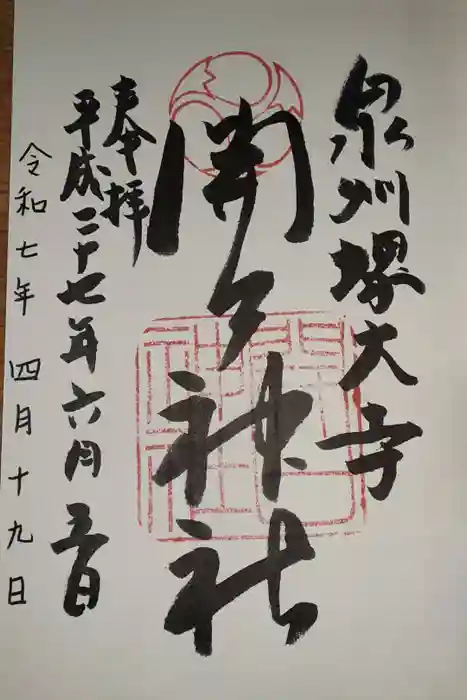 泉州堺大寺
開口神社
開口神社
奉拝
平成二十七年六月五日
令和七年四月十九日